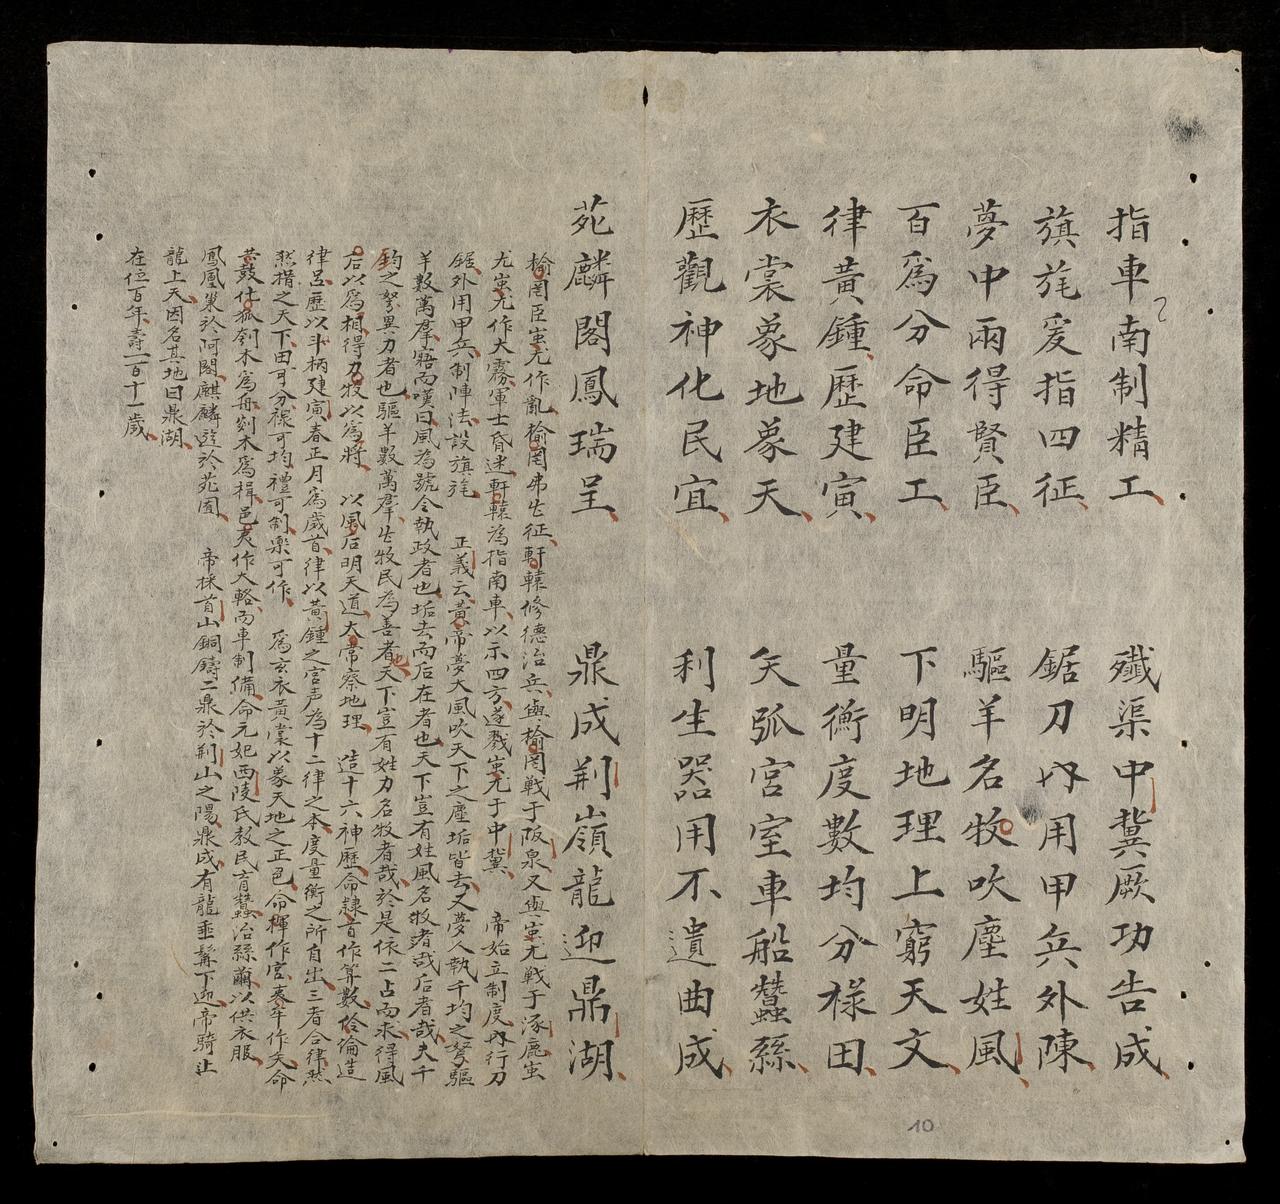 指車南制精工 殲渠中冀厥功告成
旗旄爰指四征 鋸刀內用甲兵外陳
夢中兩得賢臣 驅羊名牧吹塵姓風
百爲分命臣工 下明地理上窮天文
律黃鍾歷建寅 量衡度數均分祿田
衣裳象地象天 矢弧宮室車船蠶絲
歷觀神化民宜 利生器用不遺曲成
苑麟閣鳳瑞呈 鼎成荆嶺龍迎鼎湖
榆罔臣蚩尤作亂榆罔弗能征軒轅修德治兵與榆罔戦于阪泉又與蚩尤戦于涿鹿蚩
尤蚩尤作大霧軍士昏迷軒轅為指南車以示四方遂戮蚩尤于中冀 帝始立制度內行刀
鋸外用甲兵制陣法設旗旄 正義云黃帝夢大風吹天下之塵垢皆去又夢人執千均之弩驅
羊数萬羣寤而嘆曰風為號令執政者也垢去而后在者也天下豈有姓風名牧者哉后者哉夫千
鈞之弩異力者也驅羊数萬羣能牧民為善者也天下豈有姓力名牧者哉於是依二占而求得風
后以為相得力牧以為將 以風后明天道太常察地理 造十六神歷命隸首作算数伶淪造
律呂歷以斗柄建寅春正月爲歲首律以黃鍾之宫声為十二律之本度量衡之所自出三者合律然
然措之天下田可分祿可均禮可制樂可作 爲玄衣黃裳以象天地之正色命揮作宮夷牟作矢命
共鼓化狐刳木爲舟剡木爲楫邑夷作大輅而車制備命元妃西陵氏教民育蠶治絲繭以供衣服
鳳凰巢於阿閣麒麟遊於苑囿 帝採首山銅鑄二鼎於荆山之陽鼎成有龍垂髯下迎帝騎
龍上天因名其地曰鼎湖
在位百年壽一百十一歲
10